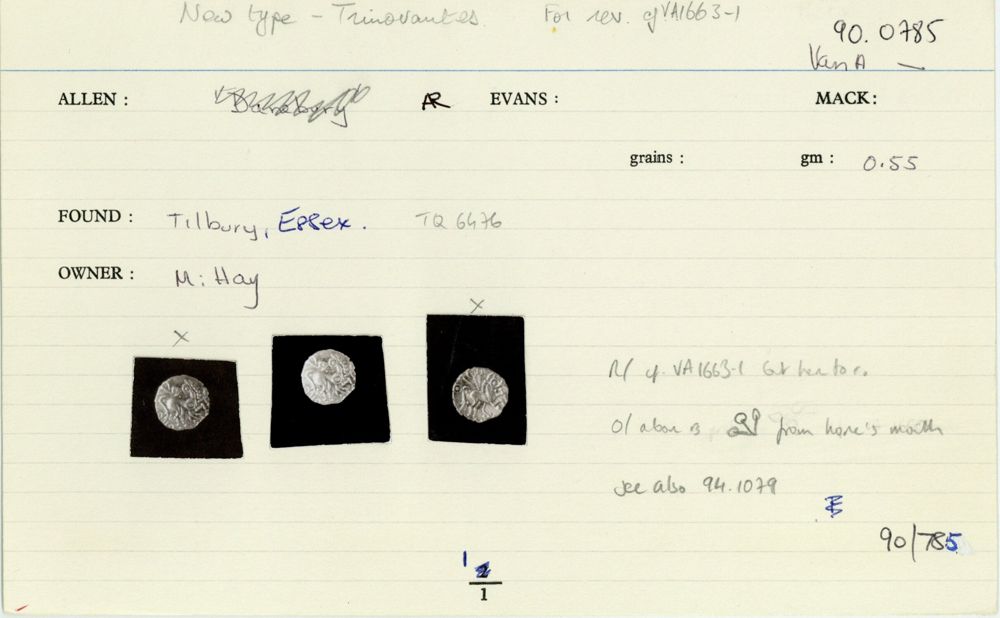 New type - Trinovantes. For rev. cf VA1663-1
90.0785
Van A —
ALLEN : AR EVANS : MACK:
grains : gm : 0.55
FOUND : Tilbury, Essex. TQ 6476
OWNER : M. Hay
x x
R/ cf. VA1663-1 but
O/ from horse's mouth
see also 94.1079
90/785
1
1